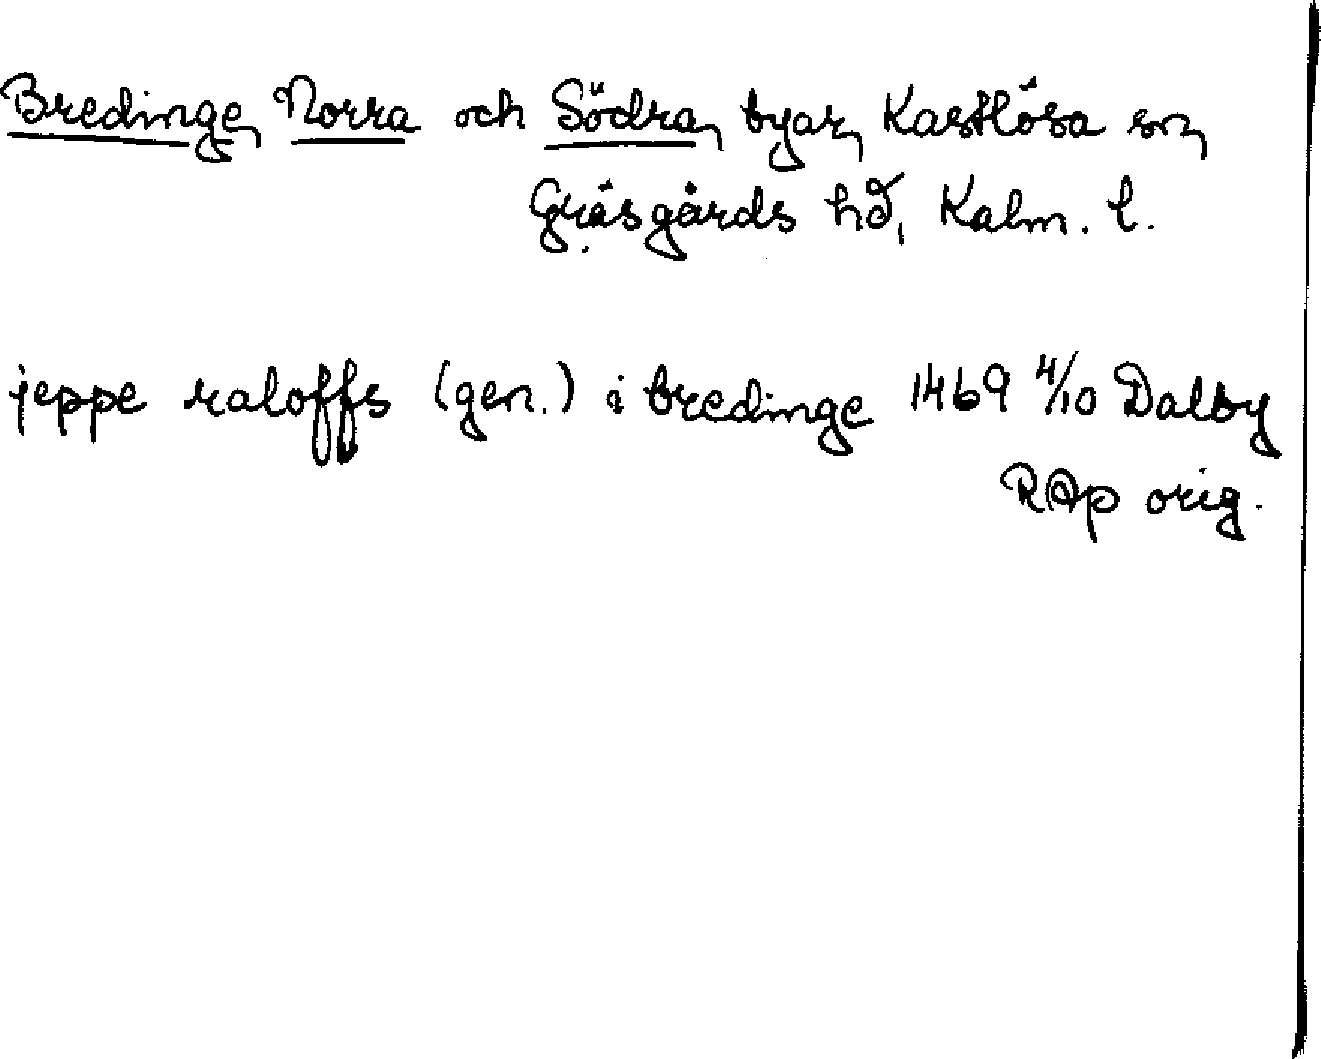 Bredinge, Norra och Södra, byar, Kastlösa sn,
Gräsgårds hd, Kalm. l.
jeppe raloffs (gen.) i bredinge 1469 4/10 Dalby
RAp orig.